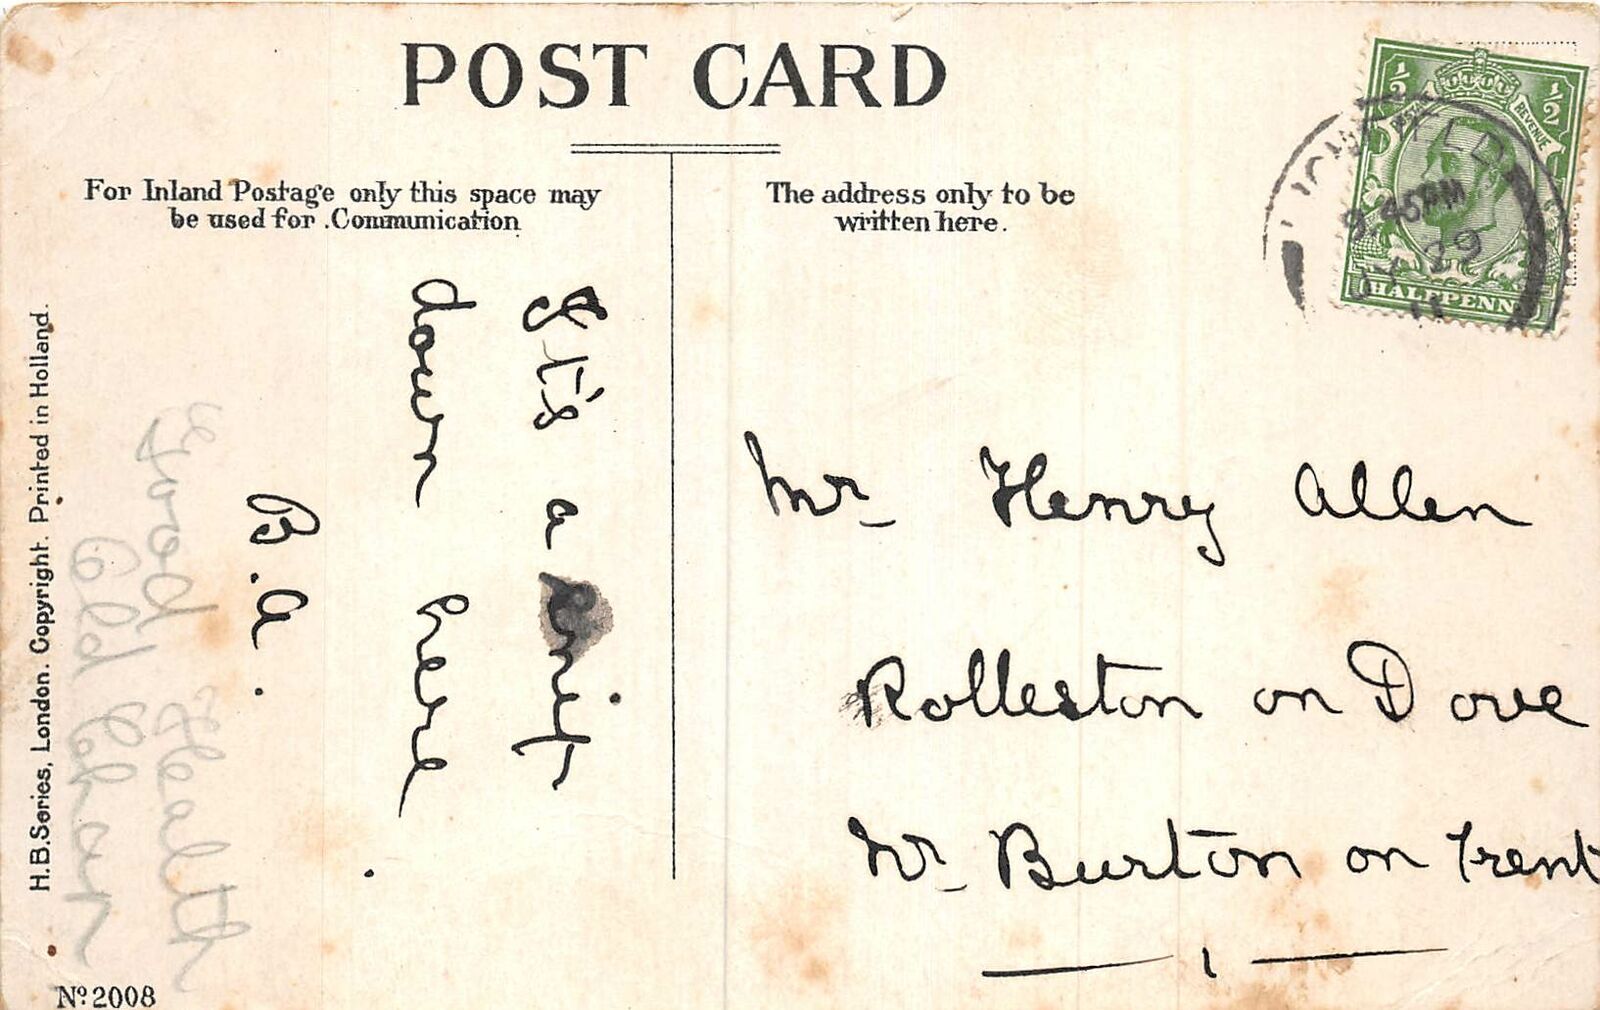 POST CARD
For Inland Postage only this space may
be used for Communication
The address only to be
written here.
It's a
down here
B.A.
Good Health
Old Chap
Mr Henry Allen
Rolleston on Dove
Nr Burton on Trent
H.B. Series, London. Copyright. Printed in Holland.
No. 2008
½ ½
REVENUE
HALFPENNY
9.45PM
JY 29
11